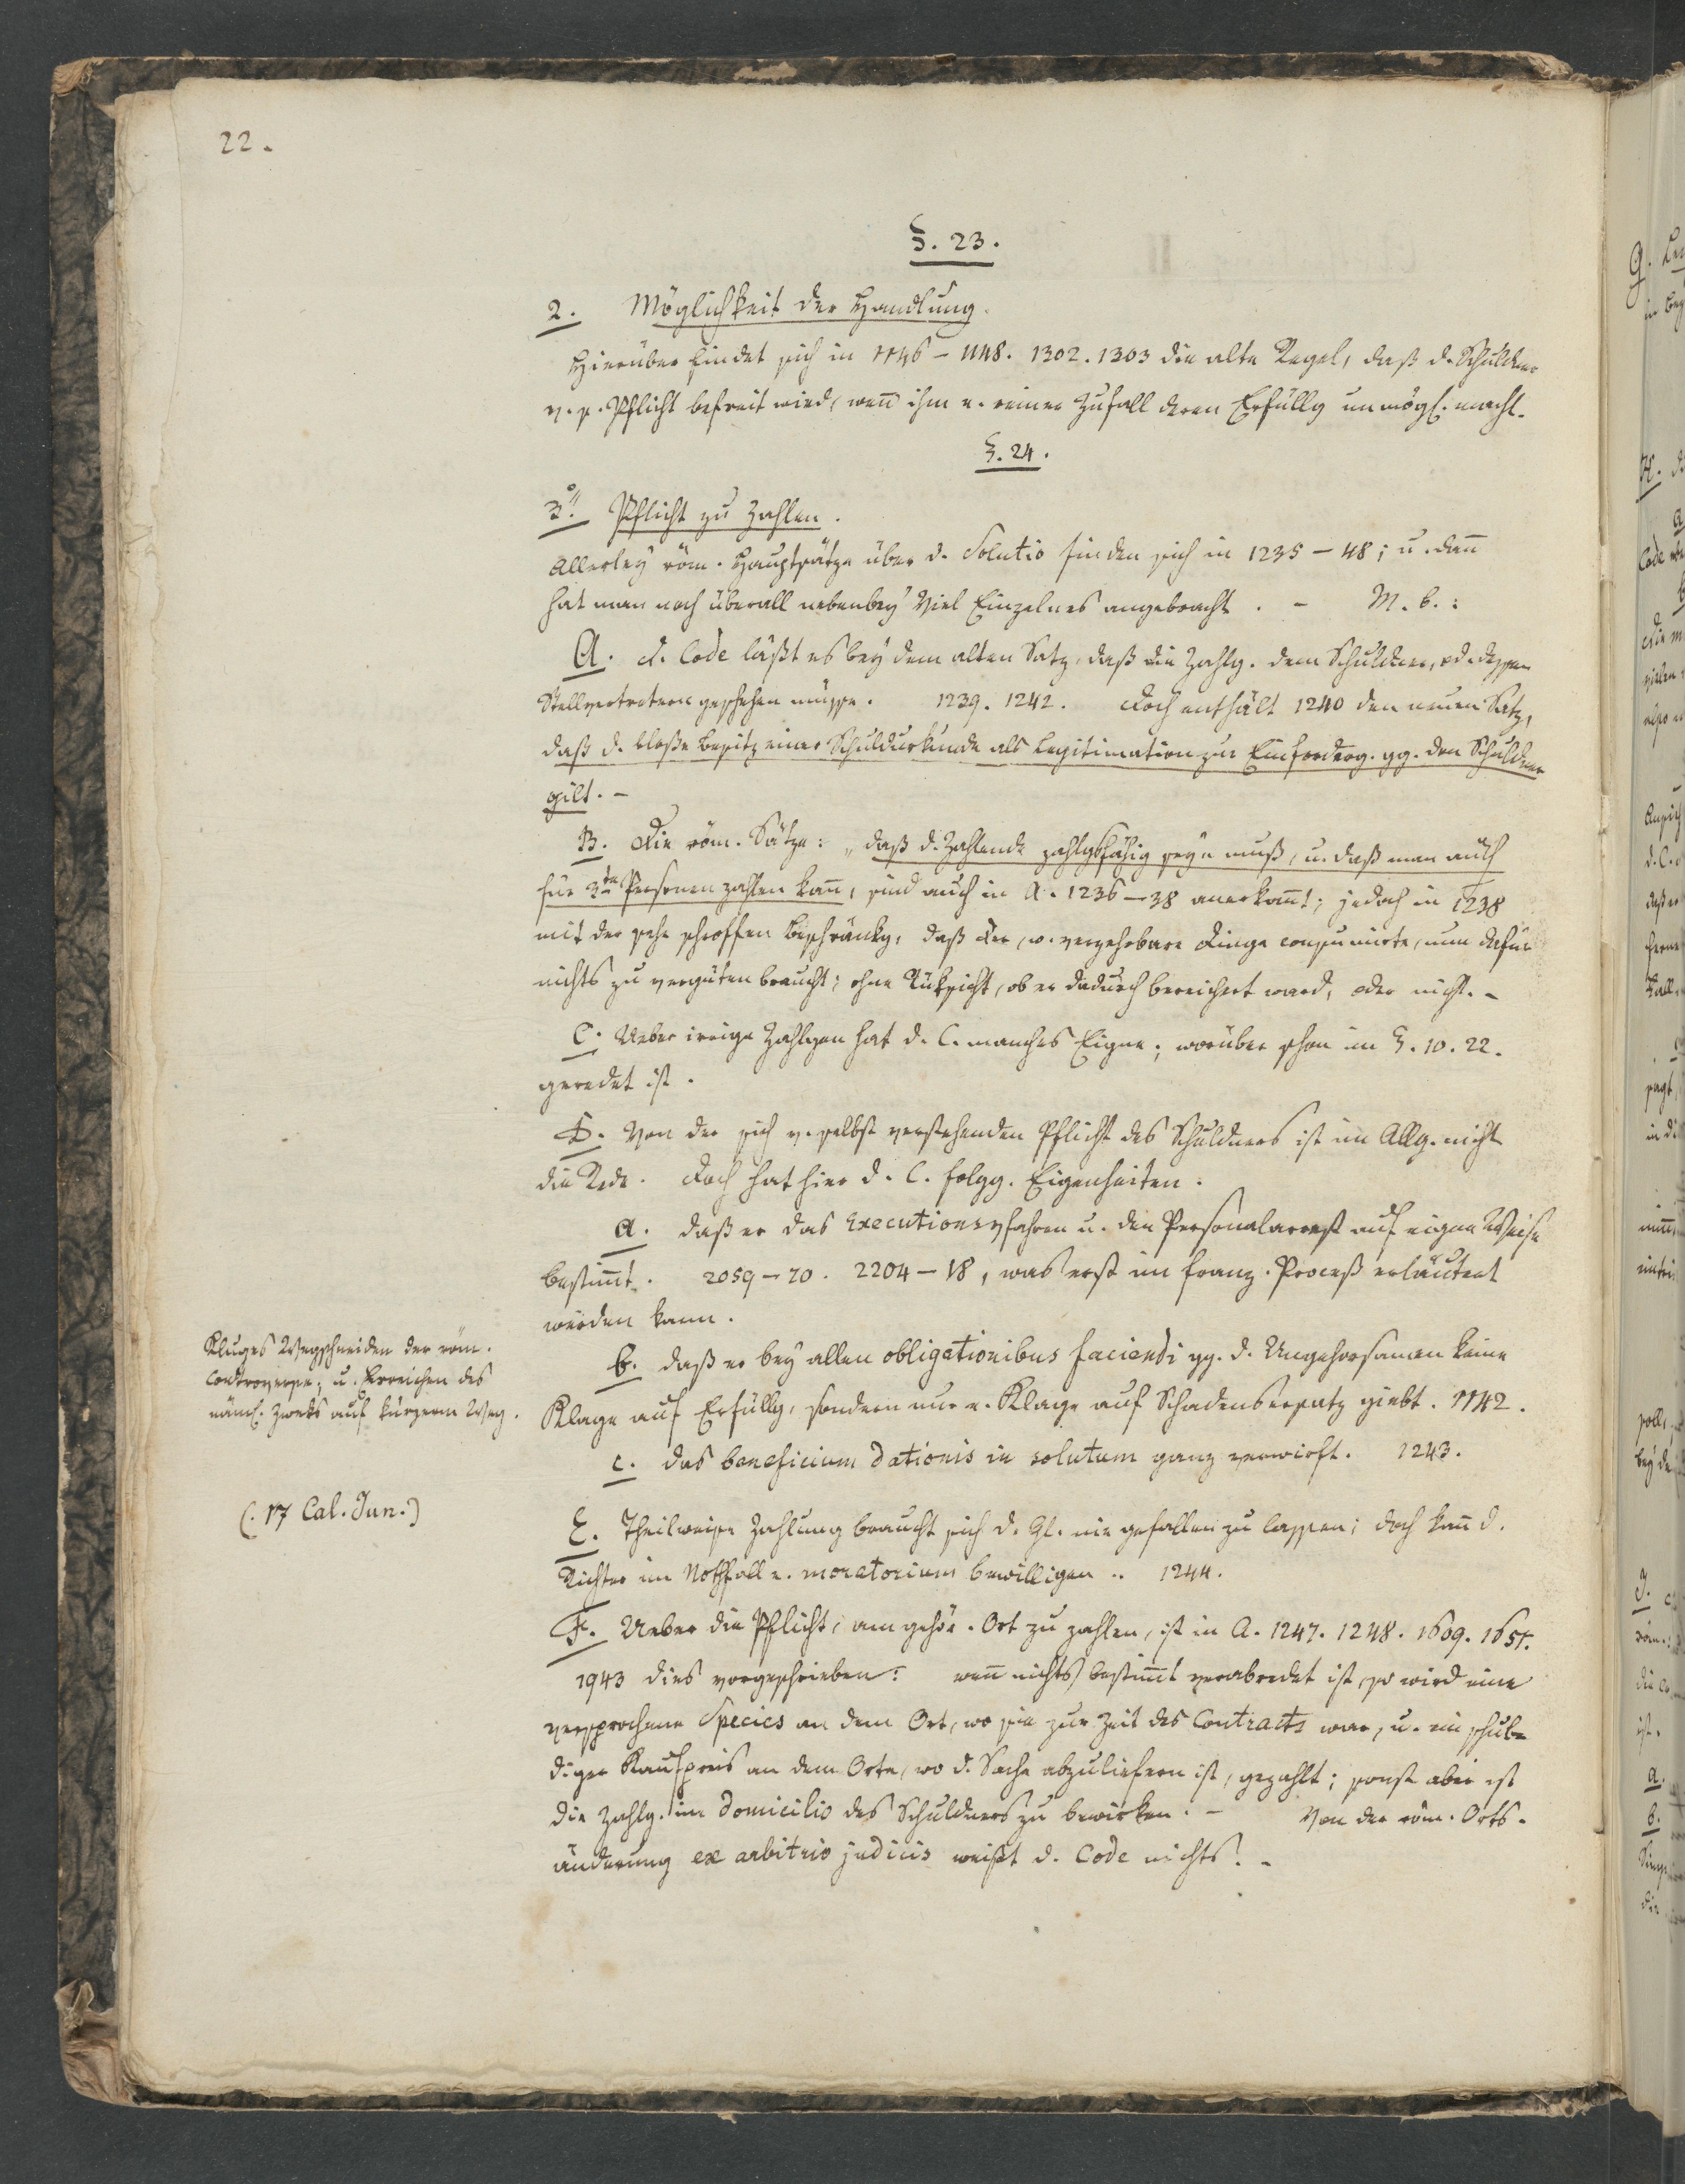 22.
§. 23.
2. Möglichkeit der Handlung.
Hierüber findet sich in 1146 – 1148. 1302. 1303 die alte Regel, daß d. Schuldner
v. s. Pflicht befreit wird, wenn ihm e. reiner Zufall deren Erfüllg unmögl. macht.
§. 24.
3. Pflicht zu Zahlen.
Allerley röm. Hauptsätze über d. Solutio finden sich in 1235 – 48; u. dann
hat man noch überall nebenbey viel Einzelnes angebracht. – M. b.:
A. d. Code läßt es bey dem alten Satz, daß die Zahlg. dem Schuldner, od. dessen
Stellvertretern geschehen müsse. 1239. 1242. Doch enthält 1240 den neuen Satz,
daß d. bloße Besitz einer Schuldurkunde als Legitimation zur Einforderg. gg. den Schuldner
gilt. –
B. Die röm. Sätze: „daß d. Zahlende zahlgsfähig seyn muß, u. daß man auch
für 3te Personen zahlen kann, sind auch in A. 1236 – 38 anerkannt; jedoch in 1238
mit der sehr schroffen Beschränkg, daß der, w. verzehrbare Dinge consumirte, nun dafür
nichts zu vergüten braucht; ohne Rüksicht, ob er dadurch bereichert ward, oder nicht. –
C. Ueber irrige Zahlgen hat d. C. manches Eigne; worüber schon im §. 10. 22.
geredet ist.
D. Von der sich v. selbst verstehenden Pflicht des Schuldners ist im Allg. nicht
die Rede. Doch hat hier d. C. folgg. Eigenheiten:
a. daß er das Executionsvfahren u. den Personalarrest auf eigne Weise
bestimmt. 2059 – 70. 2204 – 18, was erst im franz. Proceß erläutert
werden kann.
b. daß er bey allen obligationibus faciendi gg. d. Ungehorsamen keine
Klage auf Erfüllg, sondern nur e. Klage auf Schadensersatz giebt. 1142.
c. das beneficium dationis in solutum ganz verwirft. 1243.
Kluges Wegschneiden der röm.
Controverse; u. Erreichen des
näml. Zweks auf kürzerm Weg.
(: 17 Cal. Jun.)
E. Theilweise Zahlung braucht sich d. Gl. nie gefallen zu lassen; doch kann d.
Richter im Nothfall e. moratorium bewilligen. 1244.
F. Ueber die Pflicht, am gehör. Ort zu zahlen, ist in A. 1247. 1248. 1609. 1651.
1943 dies vorgeschrieben: wenn nichts bestimmt verabredet ist, so wird eine
versprochene Species an dem Ort, wo sie zur Zeit des Contracts war, u. ein schul-
diger Kaufpreis an dem Orte, wo d. Sache abzuliefern ist, gezahlt; sonst aber ist
die Zahlg. im domicilio des Schuldners zu bewirken. – Von der röm. Orts-
änderung ex arbitrio judicis weißt d. Code nichts. –